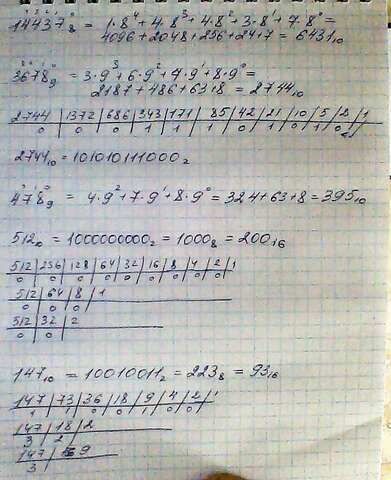 14437₈ = 1·8⁴+4·8³+4·8²+3·8¹+7·8⁰=
4096+2048+256+24+7= 6431₁₀
3678₉ = 3·9³+6·9²+7·9¹+8·9⁰=
2187+486+63+8=2744₁₀
2744 | 1372 | 686 | 343 | 171 | 85 | 42 | 21 | 10 | 5 | 2 | 1
0 0 0 1 1 1 0 1 0 1 0
2744₁₀=101010111000₂
478₉ = 4·9²+7·9¹+8·9⁰=324+63+8=395₁₀
512₁₀ =1000000000₂=1000₈=200₁₆
512 | 256 | 128 | 64 | 32 | 16 | 8 | 4 | 2 | 1
0 0 0 0 0 0 0 0 0
512 | 64 | 8 | 1
0 0 0
512 | 32 | 2
0 0
147₁₀ = 10010011₂=223₈=93₁₆
147 | 73 | 36 | 18 | 9 | 4 | 2 | 1
1 1 0 0 1 0 0
147 | 18 | 2
3 2
147 | 9
3